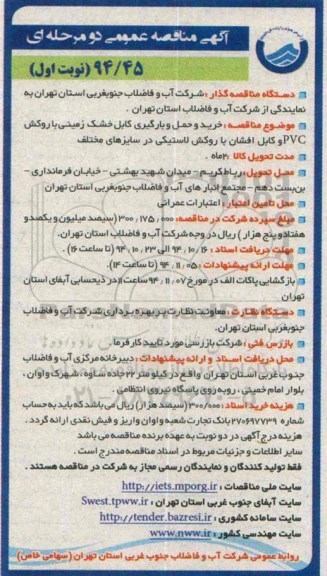 آگهی مناقصه عمومی دو مرحله ای
۹۴/۴۵ (نوبت اول)
دستگاه مناقصه گذار : شرکت آب و فاضلاب جنوبغربی استان تهران به
نمایندگی از شرکت آب و فاضلاب استان تهران .
موضوع مناقصه : خرید و حمل و بارگیری کابل خشک زمینی با روکش
PVC و کابل افشان با روکش لاستیکی در سایزهای مختلف
مدت تحویل کالا : ۲ماه .
محل تحویل : رباط کریم - میدان شهید بهشتی - خیابان فرمانداری -
بن بست دهم - مجتمع انبار های آب و فاضلاب جنوبغربی استان تهران
محل تامین اعتبار : اعتبارات عمرانی
مبلغ سپرده شرکت در مناقصه: ۳۰۰,۱۷۵,۰۰۰ (سیصد میلیون و یکصد و
هفتاد و پنج هزار ) ریال در وجه شرکت آب و فاضلاب استان تهران.
مهلت دریافت اسناد : ۹۴,۱۰,۱۶ الی ۹۴,۱۰,۲۳ (تا ساعت ۱۶) .
مهلت ارائه پیشنهادات : ۹۴,۱۱,۰۵ (تا ساعت ۱۴).
بازگشایی پاکات الف در مورخ ۹۴,۱۱,۰۷ ساعت ۱۱ در ذیحسابی آبفای استان
تهران
دستگاه نظارت : معاونت نظارت بر بهره برداری شرکت آب و فاضلاب
جنوبغربی استان تهران.
بازرس فنی : شرکت بازرسی مورد تایید کارفرما
محل دریافت اسناد و ارائه پیشنهادات : دبیرخانه مرکزی آب و فاضلاب
جنوب غربی استان تهران واقع در کیلومتر ۲۲ جاده ساوه ، شهرک واوان ،
بلوار امام خمینی ، روبه روی پاسگاه نیروی انتظامی .
هزینه خرید اسناد : ۳۰۰/۰۰۰ (سیصد هزار) ریال می باشد که باید به حساب
شماره ۲۷۰۶۹۷۷۳۹ بانک تجارت شعبه واوان واریز و فیش نقدی ارائه گردد .
هزینه درج آگهی در دو نوبت به عهده برنده مناقصه می باشد
سایر اطلاعات و جزئیات مربوط در اسناد مناقصه مندرج است .
فقط تولید کنندگان و نمایندگان رسمی مجاز به شرکت در مناقصه هستند .
سایت ملی مناقصات : http://iets.mporg.ir
سایت آبفای جنوب غربی استان تهران : Swest.tpww.ir
سایت سامانه کشوری : http://tender.bazresi.ir
سایت مهندسی کشور : www.nww.ir
روابط عمومی شرکت آب و فاضلاب جنوب غربی استان تهران (سهامی خاص)